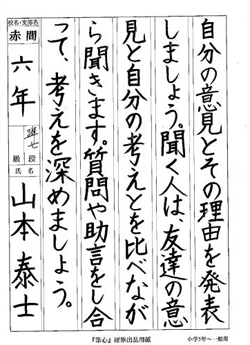 自分の意見とその理由を発表
しましょう。聞く人は、友達の意
見と自分の考えとを比べなが
ら聞きます。質問や助言をし合
って、考えを深めましょう。
校名・支部名
赤間
六年
級 段
氏名
山本泰士
『筆心』硬筆出品用紙
小学5年〜一般用